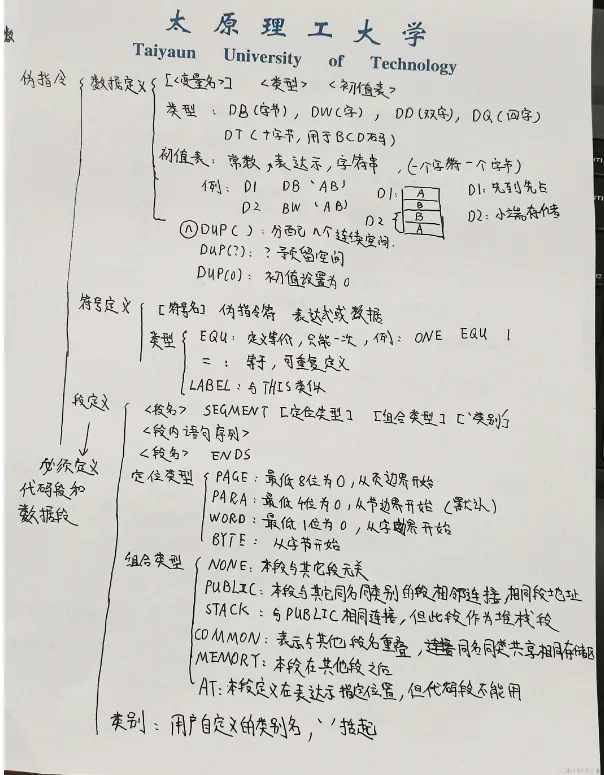 太原理工大学
Taiyaun University of Technology
伪指令 数据定义 [<变量名>] <类型> <初值表>
类型：DB(字节), DW(字), DD(双字), DQ(四字)
DT(十字节,用于BCD码)
初值表：常数,表达示,字符串,(一个字符一个字节)
例：D1 DB 'AB' D1: A D1:先到先占
D2 BW 'AB' B D2:小端存储
D2 B
A
n DUP( )：分配n个连续空间.
DUP(?)：?预留空间
DUP(0)：初值设置为0
符号定义 [符号名] 伪指令符 表达式或数据
类型 EQU：定义等价,只能一次,例：ONE EQU 1
=：等于,可重复定义
LABEL：与THIS类似
段定义 <段名> SEGMENT [定位类型] [组合类型] ['类别']
<段内语句序列>
必须定义 <段名> ENDS
代码段和 定位类型 PAGE：最低8位为0,从页边界开始
数据段 PARA：最低4位为0,从节边界开始(默认)
WORD：最低1位为0,从字边界开始
BYTE：从字节开始
组合类型 NONE：本段与其它段无关
PUBLIC：本段与其它同名同类别的段相邻连接,相同段地址
STACK：与PUBLIC相同连接,但此段作为堆栈段
COMMON：表示与其他段名重叠,连接同名同类共享相同存储区
MEMORY：本段在其他段之后
AT：本段定义在表达示指定位置,但代码段不能用
类别：用户自定义的类别名,' '括起